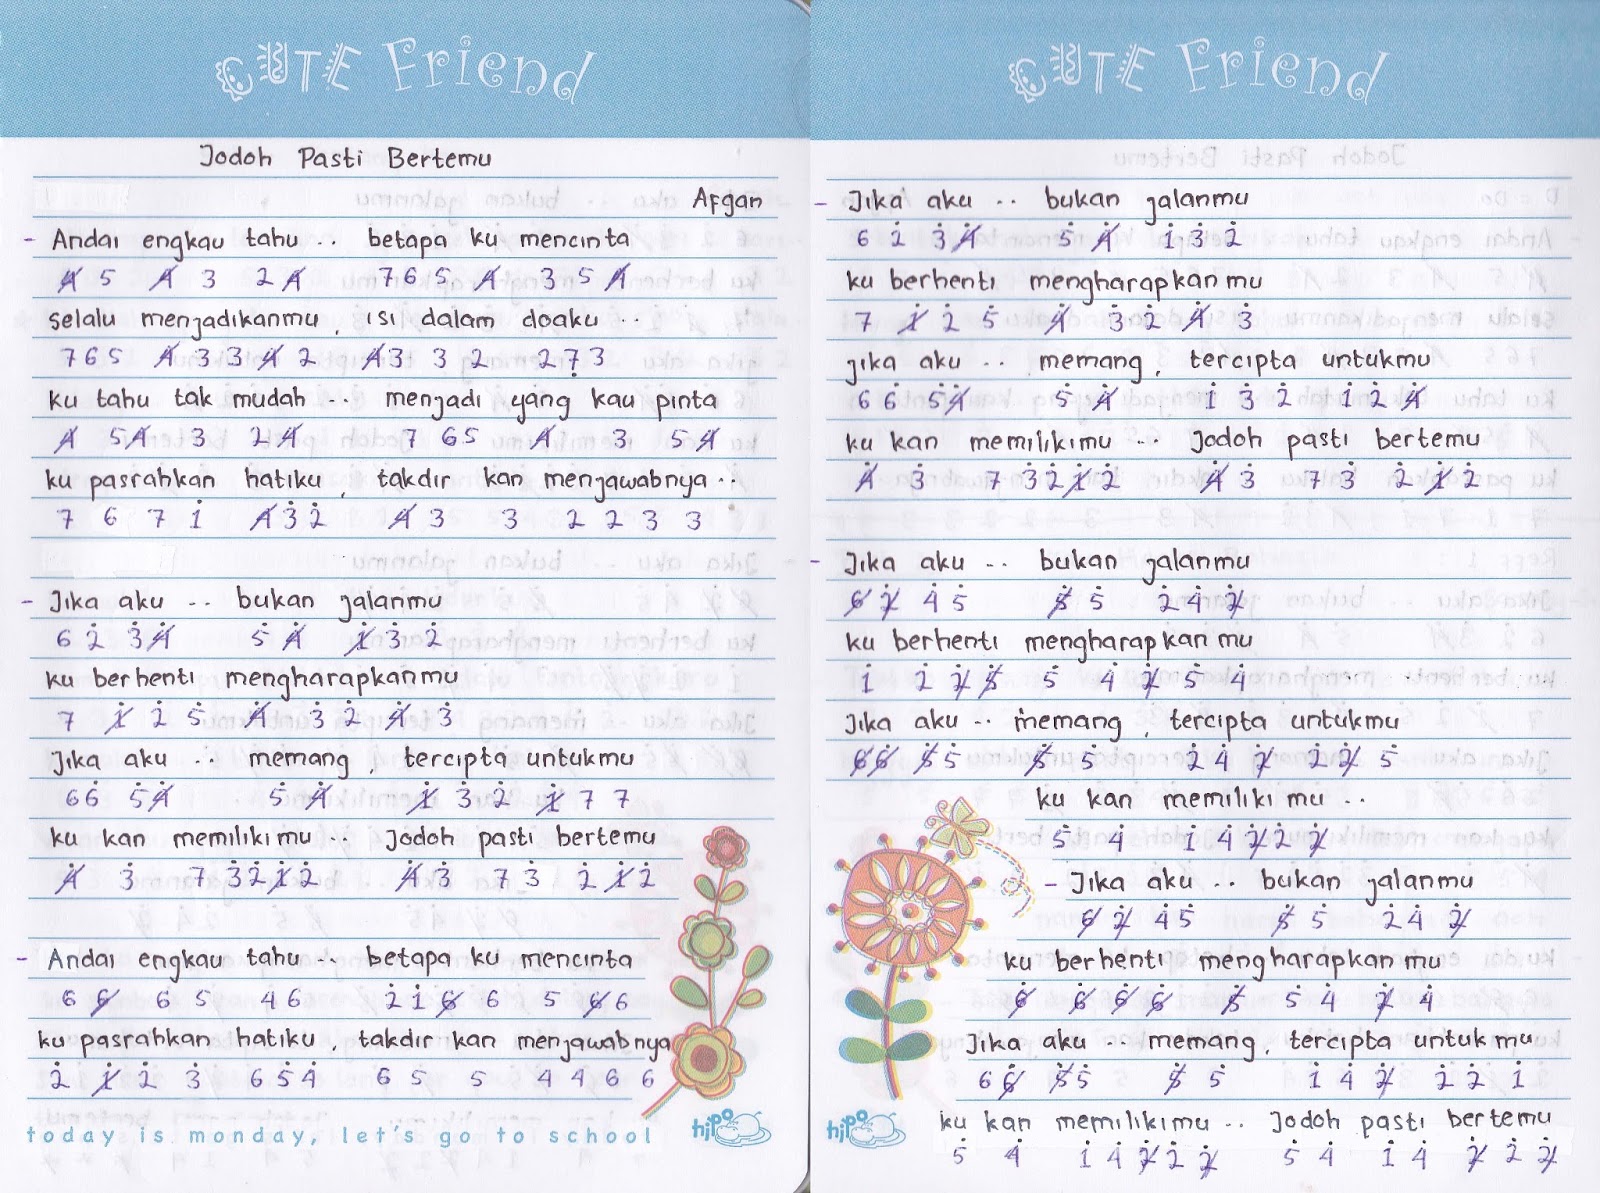 CUTE Friend
Jodoh Pasti Bertemu
Afgan
- Andai engkau tahu .. betapa ku mencinta
4 5 4 3 2 4 7 6 5 4 3 5 4
selalu menjadikanmu, isi dalam doaku ..
7 6 5 4 3 3 4 2 4 3 3 2 2 7 3
ku tahu tak mudah .. menjadi yang kau pinta
4 5 4 3 2 4 7 6 5 4 3 5 4
ku pasrahkan hatiku, takdir kan menjawabnya ..
7 6 7 1 4 3 2 4 3 3 2 2 3 3
- Jika aku .. bukan jalanmu
6 2 3 4 5 4 1 3 2
ku berhenti mengharapkanmu
7 1 2 5 4 3 2 4 3
Jika aku .. memang, tercipta untukmu
6 6 5 4 5 4 1 3 2 1 7 7
ku kan memilikimu .. Jodoh pasti bertemu
4 3 7 3 2 1 2 4 3 7 3 2 1 2
- Andai engkau tahu .. betapa ku mencinta
6 6 6 5 4 6 2 1 6 6 5 6 6
ku pasrahkan hatiku, takdir kan menjawabnya
2 1 2 3 6 5 4 6 5 5 4 4 6 6
today is monday, let's go to school
hipo
CUTE Friend
- Jika aku .. bukan jalanmu
6 2 3 4 5 4 1 3 2
ku berhenti mengharapkanmu
7 1 2 5 4 3 2 4 3
jika aku .. memang, tercipta untukmu
6 6 5 4 5 4 1 3 2 1 2 4
ku kan memilikimu .. Jodoh pasti bertemu
4 3 7 3 2 1 2 4 3 7 3 2 1 2
- Jika aku .. bukan jalanmu
6 2 4 5 5 5 2 4 2
ku berhenti mengharapkan mu
1 2 2 5 5 4 2 5 4
Jika aku .. memang, tercipta untukmu
6 6 5 5 5 5 2 4 2 2 2 5
ku kan memilikimu ..
5 4 1 4 2 2 2
- Jika aku .. bukan jalanmu
6 2 4 5 5 5 2 4 2
ku berhenti mengharapkan mu
6 6 6 6 5 5 4 2 4
Jika aku .. memang, tercipta untukmu
6 6 5 5 5 5 1 4 2 2 2 1
ku kan memilikimu .. Jodoh pasti bertemu
5 4 1 4 2 2 2 5 4 1 4 2 2 2
hipo